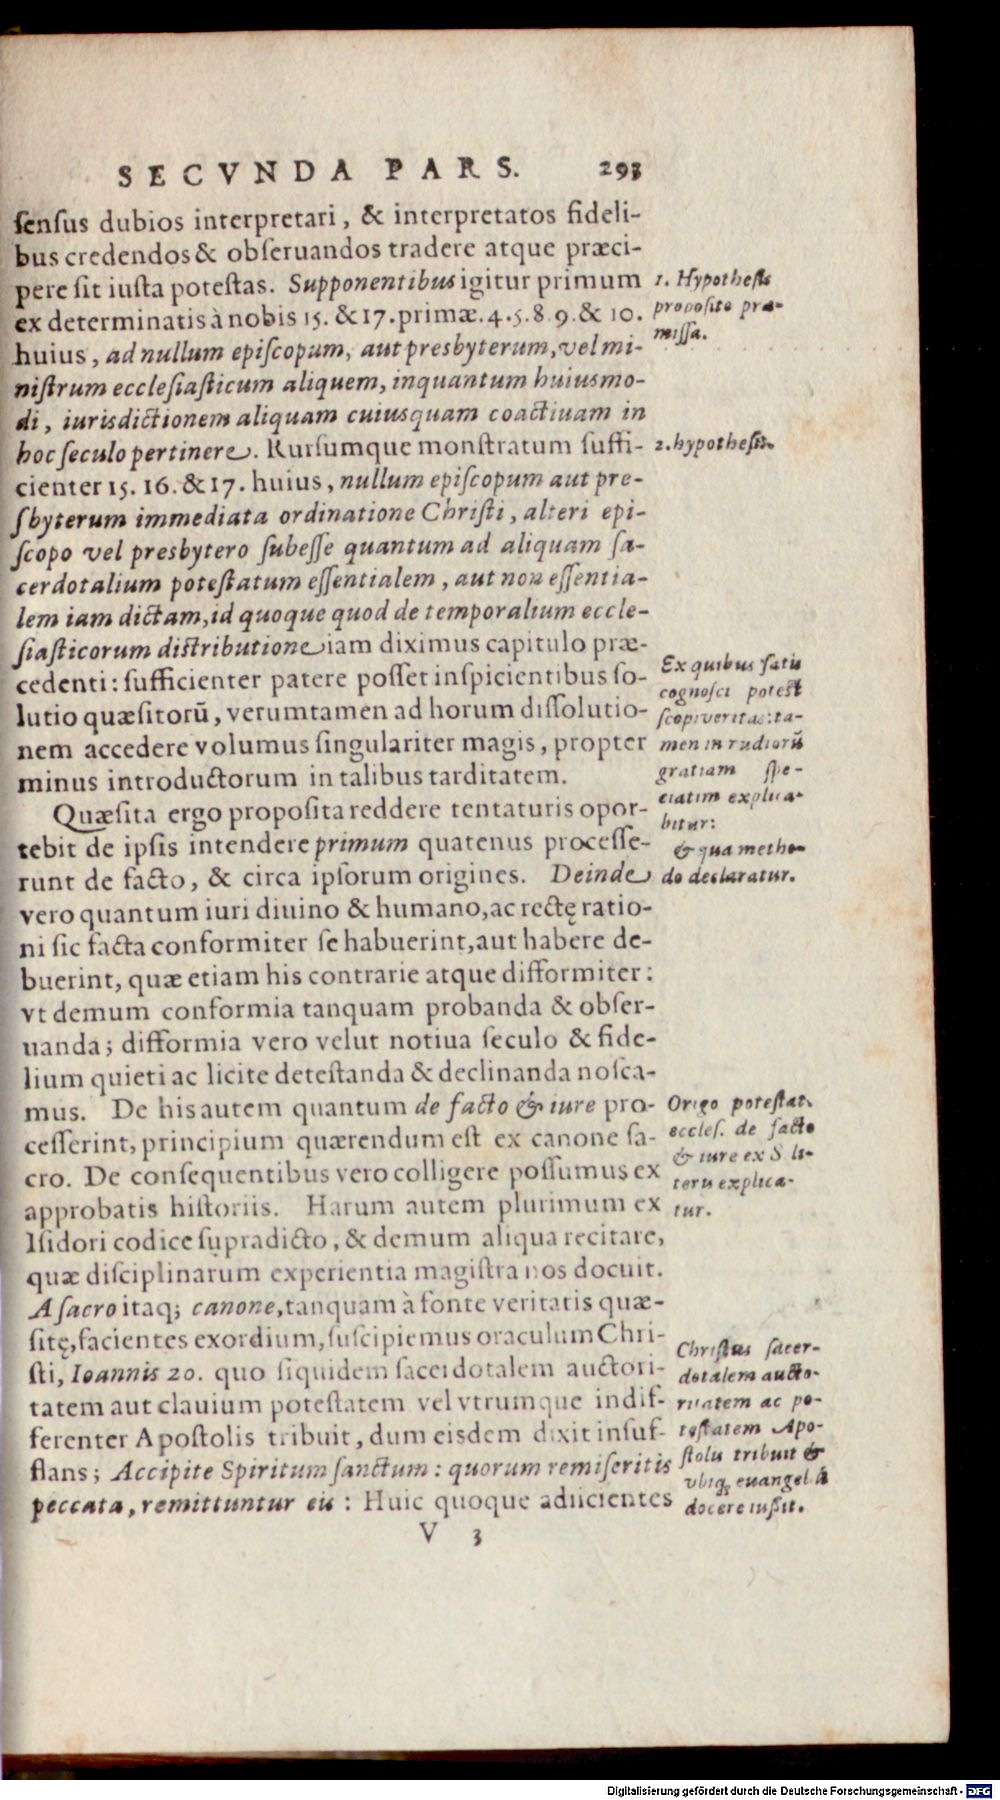 SECVNDA PARS. 293
sensus dubios interpretari, & interpretatos fideli-
bus credendos & obseruandos tradere atque præci-
pere sit iusta potestas. Supponentibus igitur primum
ex determinatis à nobis 15. & 17. primæ. 4. 5. 8. 9. & 10.
huius, ad nullum episcopum, aut presbyterum, vel mi-
nistrum ecclesiasticum aliquem, inquantum huiusmo-
di, iurisdictionem aliquam cuiusquam coactiuam in
hoc seculo pertinere. Rursumque monstratum suffi-
cienter 15. 16. & 17. huius, nullum episcopum aut pre-
sbyterum immediata ordinatione Christi, alteri epi-
scopo vel presbytero subesse quantum ad aliquam sa-
cerdotalium potestatum essentialem, aut non essentia-
lem iam dictam, id quoque quod de temporalium eccle-
siasticorum distributione iam diximus capitulo præ-
cedenti: sufficienter patere posset inspicientibus so-
lutio quæsitorũ, verumtamen ad horum dissolutio-
nem accedere volumus singulariter magis, propter
minus introductorum in talibus tarditatem.
Quæsita ergo proposita reddere tentaturis opor-
tebit de ipsis intendere primum quatenus processe-
runt de facto, & circa ipsorum origines. Deinde
vero quantum iuri diuino & humano, ac rectę ratio-
ni sic facta conformiter se habuerint, aut habere de-
buerint, quæ etiam his contrarie atque difformiter:
vt demum conformia tanquam probanda & obser-
uanda; difformia vero velut notiua seculo & fide-
lium quieti ac licite detestanda & declinanda nosca-
mus. De his autem quantum de facto & iure pro-
cesserint, principium quærendum est ex canone sa-
cro. De consequentibus vero colligere possumus ex
approbatis historiis. Harum autem plurimum ex
Isidori codice supradicto, & demum aliqua recitare,
quæ disciplinarum experientia magistra nos docuit.
A sacro itaq; canone, tanquam à fonte veritatis quæ-
sitę, facientes exordium, suscipiemus oraculum Chri-
sti, Ioannis 20. quo siquidem sacerdotalem auctori-
tatem aut clauium potestatem vel vtrumque indif-
ferenter Apostolis tribuit, dum eisdem dixit insuf-
flans; Accipite Spiritum sanctum: quorum remiseritis
peccata, remittuntur eis: Huic quoque adiicientes
V 3
1. Hypothesis
proposito præ-
missa.
2. hypothesis.
Ex quibus satis
cognosci potest
scopi veritas: ta-
men in rudiorũ
gratiam spe-
ciatim explica-
bitur:
& qua metho-
do declaratur.
Origo potestat.
eccles. de facto
& iure ex S. li-
teris explica-
tur.
Christus sacer-
dotalem aucto-
ritatem ac po-
testatem Apo-
stolis tribuit &
vbiq; euangeliũ
docere iussit.
Digitalisierung gefördert durch die Deutsche Forschungsgemeinschaft - DFG